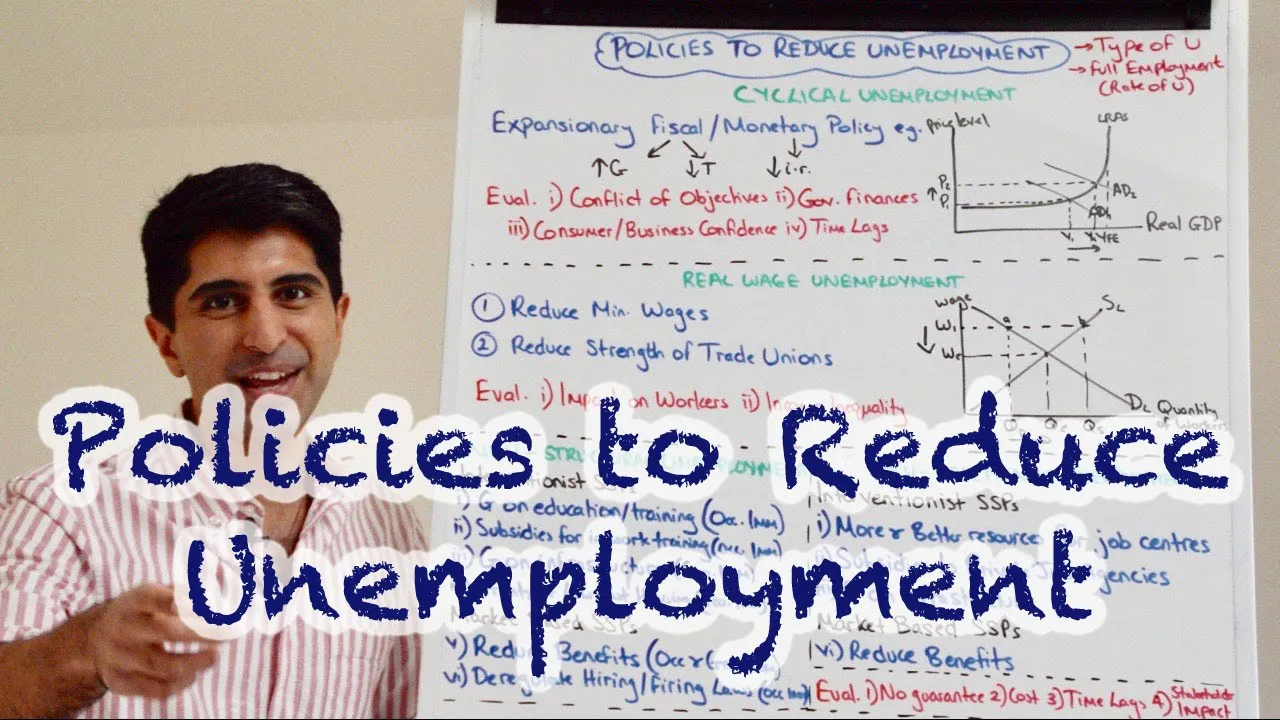 POLICIES TO REDUCE UNEMPLOYMENT
→ Type of U
→ Full Employment
(Rate of U)
CYCLICAL UNEMPLOYMENT
Expansionary Fiscal/Monetary Policy eg.
↑G ↓T ↓i.r.
Eval. i) Conflict of Objectives ii) Gov. Finances
iii) Consumer/Business Confidence iv) Time Lags
Price level
LRAS
P2
P1
AD2
AD1
Real GDP
Y1 Y2 YFE
REAL WAGE UNEMPLOYMENT
① Reduce Min. Wages
② Reduce Strength of Trade Unions
Eval. i) Impact on Workers ii) Inequality
Wage
SL
a b
W1
We
DL Quantity
of Workers
Qe Qs
Policies to Reduce
Unemployment
STRUCTURAL UNEMPLOYMENT
SSPs
i) G on education/training (Occ. Imm)
ii) Subsidies for training (Occ. Imm)
Market Based SSPs
v) Reduce Benefits (Occ
vi) Deregulate Hiring/Firing Laws
Interventionist SSPs
i) More & Better resources job centres
agencies
Market Based SSPs
vi) Reduce Benefits
Eval. 1) No guarantee 2) Cost 3) Time Lags 4) Stakeholder
Impact